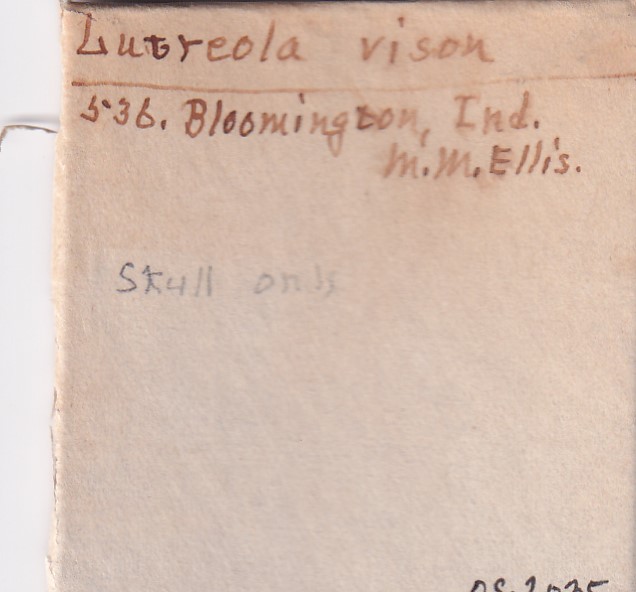 Lutreola vison
536. Bloomington, Ind.
M.M.Ellis.
Skull only